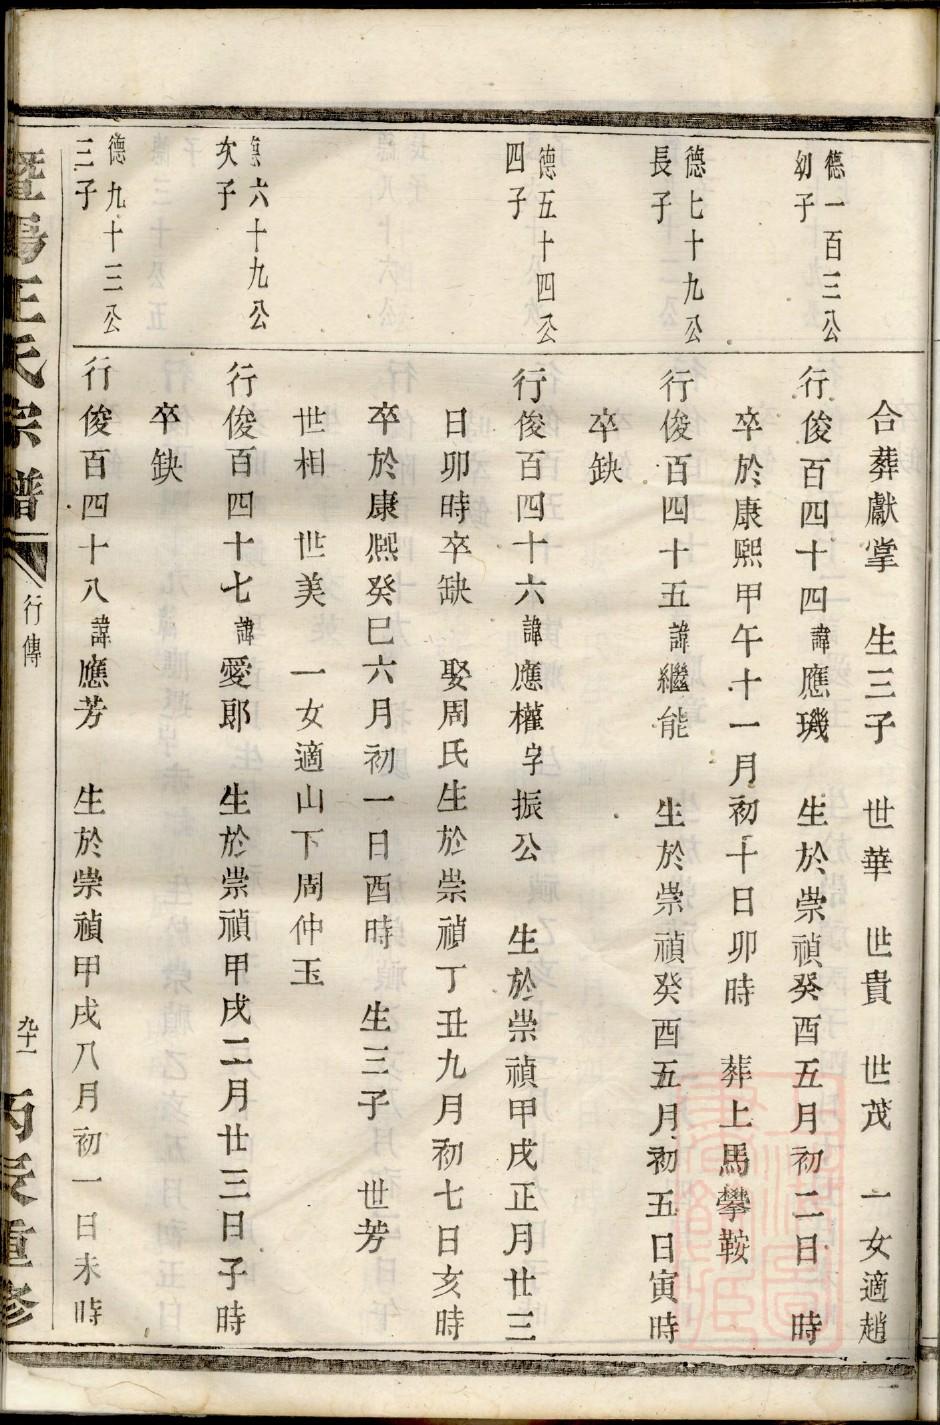 合葬獻掌　生三子　世華　世貴　世茂　一女適趙
德一百三公
幼子
行俊百四十四諱應璣　生於崇禎癸酉五月初二日　時
卒於康熙甲午十一月初十日卯時　葬上馬攀鞍
德七十九公
長子
行俊百四十五諱繼能　生於崇禎癸酉五月初五日寅時
卒缺
德五十四公
四子
行俊百四十六諱應權字振公　生於崇禎甲戌正月廿三
日卯時卒缺　娶周氏生於崇禎丁丑九月初七日亥時
卒於康熙癸巳六月初一日酉時　生三子　世芳
世相　世美　一女適山下周仲玉
德六十九公
次子
行俊百四十七諱愛郎　生於崇禎甲戌二月廿三日子時
卒缺
德九十三公
三子
行俊百四十八諱應芳　生於崇禎甲戌八月初一日未時
暨陽王氏宗譜
行傳
九十一
丙辰重修